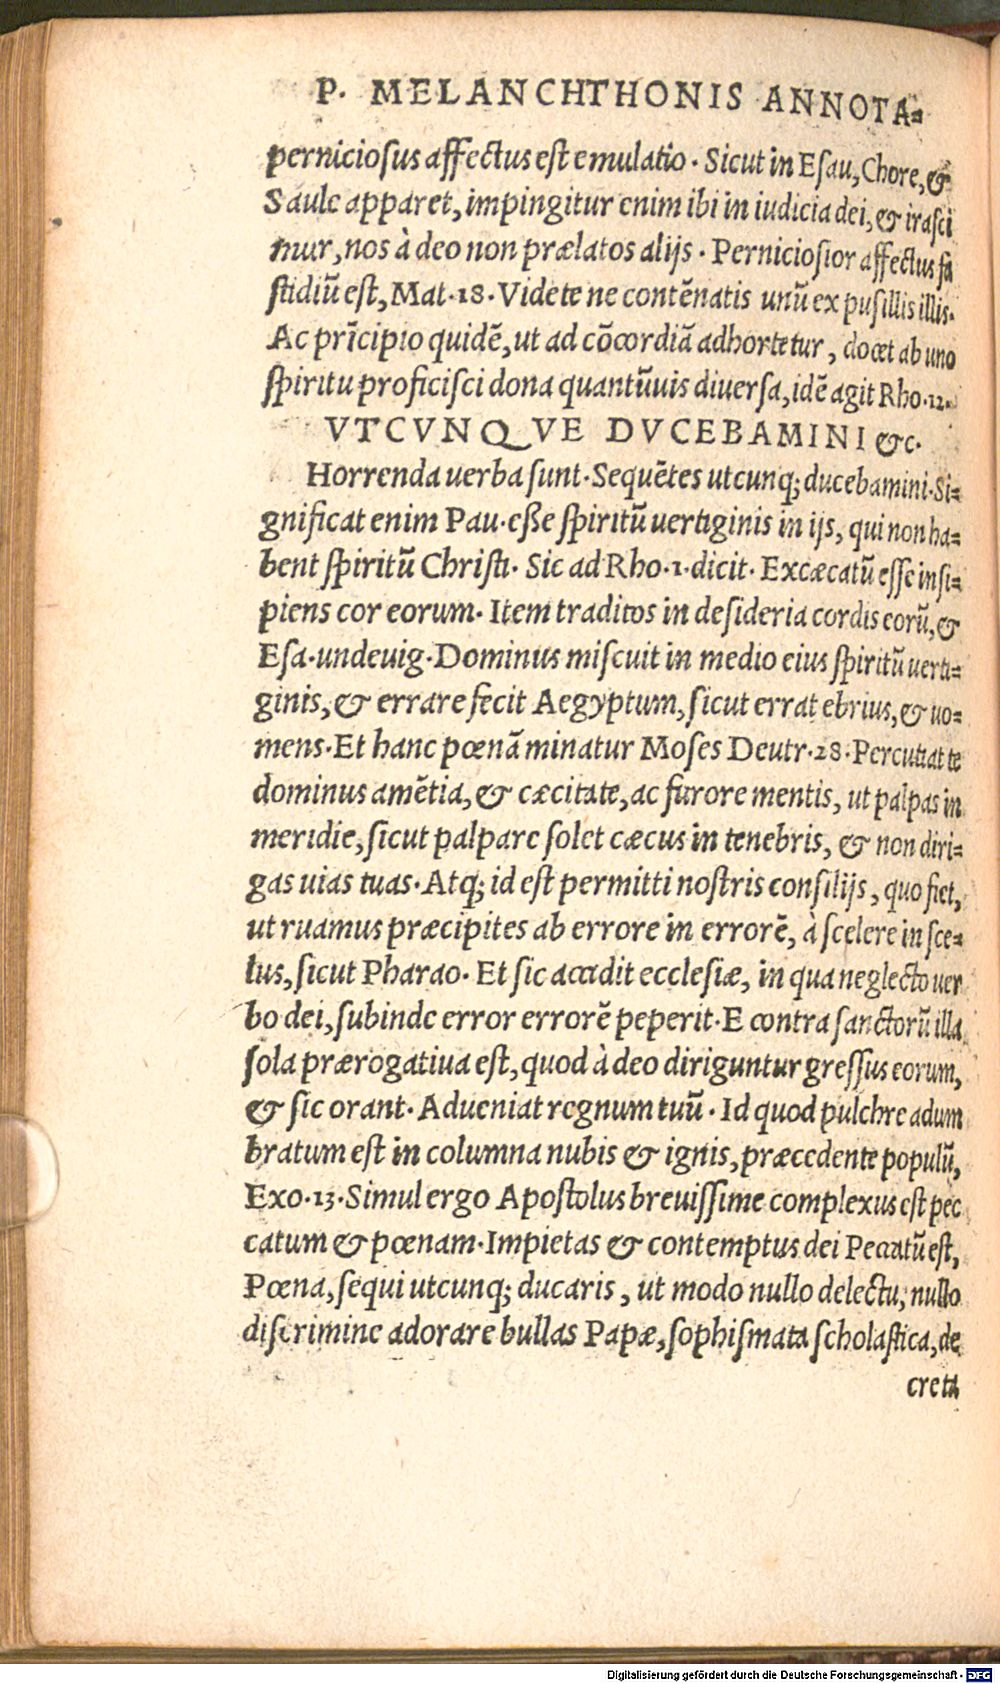 P. MELANCHTHONIS ANNOTA-
perniciosus affectus est emulatio. Sicut in Esau, Chore, &
Saule apparet, impingitur enim ibi in iudicia dei, & irasci
mur, nos à deo non prælatos alijs. Perniciosior affectus fa
stidiũ est, Mat. 18. Videte ne contẽnatis unũ ex pusillis illis.
Ac prĩcipio quidẽ, ut ad cõcordiã adhortetur, docet ab uno
spiritu proficisci dona quantũuis diuersa, idẽ agit Rho. 12.
VTCVNQVE DVCEBAMINI &c.
Horrenda uerba sunt. Sequẽtes utcunq; ducebamini. Si-
gnificat enim Pau. eße spiritũ uertiginis in ijs, qui non ha-
bent spiritũ Christi. Sic ad Rho. 1. dicit. Excæcatũ esse insi-
piens cor eorum. Item traditos in desideria cordis eorũ, &
Esa. undeuig. Dominus miscuit in medio eius spiritũ uerti-
ginis, & errare fecit Aegyptum, sicut errat ebrius, & uo-
mens. Et hanc pœnã minatur Moses Deutr. 28. Percutiat te
dominus amẽtia, & cæcitate, ac furore mentis, ut palpas in
meridie, sicut palpare solet cæcus in tenebris, & non diri-
gas uias tuas. Atq; id est permitti nostris consilijs, quo fiet,
ut ruamus præcipites ab errore in errorẽ, à scelere in sce-
lus, sicut Pharao. Et sic accidit ecclesiæ, in qua neglecto uer
bo dei, subinde error errorẽ peperit. E contra sanctorũ illa
sola prærogatiua est, quod à deo diriguntur gressus eorum,
& sic orant. Adueniat regnum tuũ. Id quod pulchre adum
bratum est in columna nubis & ignis, præcedente populũ,
Exo. 13. Simul ergo Apostolus breuissime complexus est pec
catum & pœnam. Impietas & contemptus dei Peccatũ est,
Pœna, sequi utcunq; ducaris, ut modo nullo delectu, nullo
discrimine adorare bullas Papæ, sophismata scholastica, de
creta
Digitalisierung gefördert durch die Deutsche Forschungsgemeinschaft - DFG